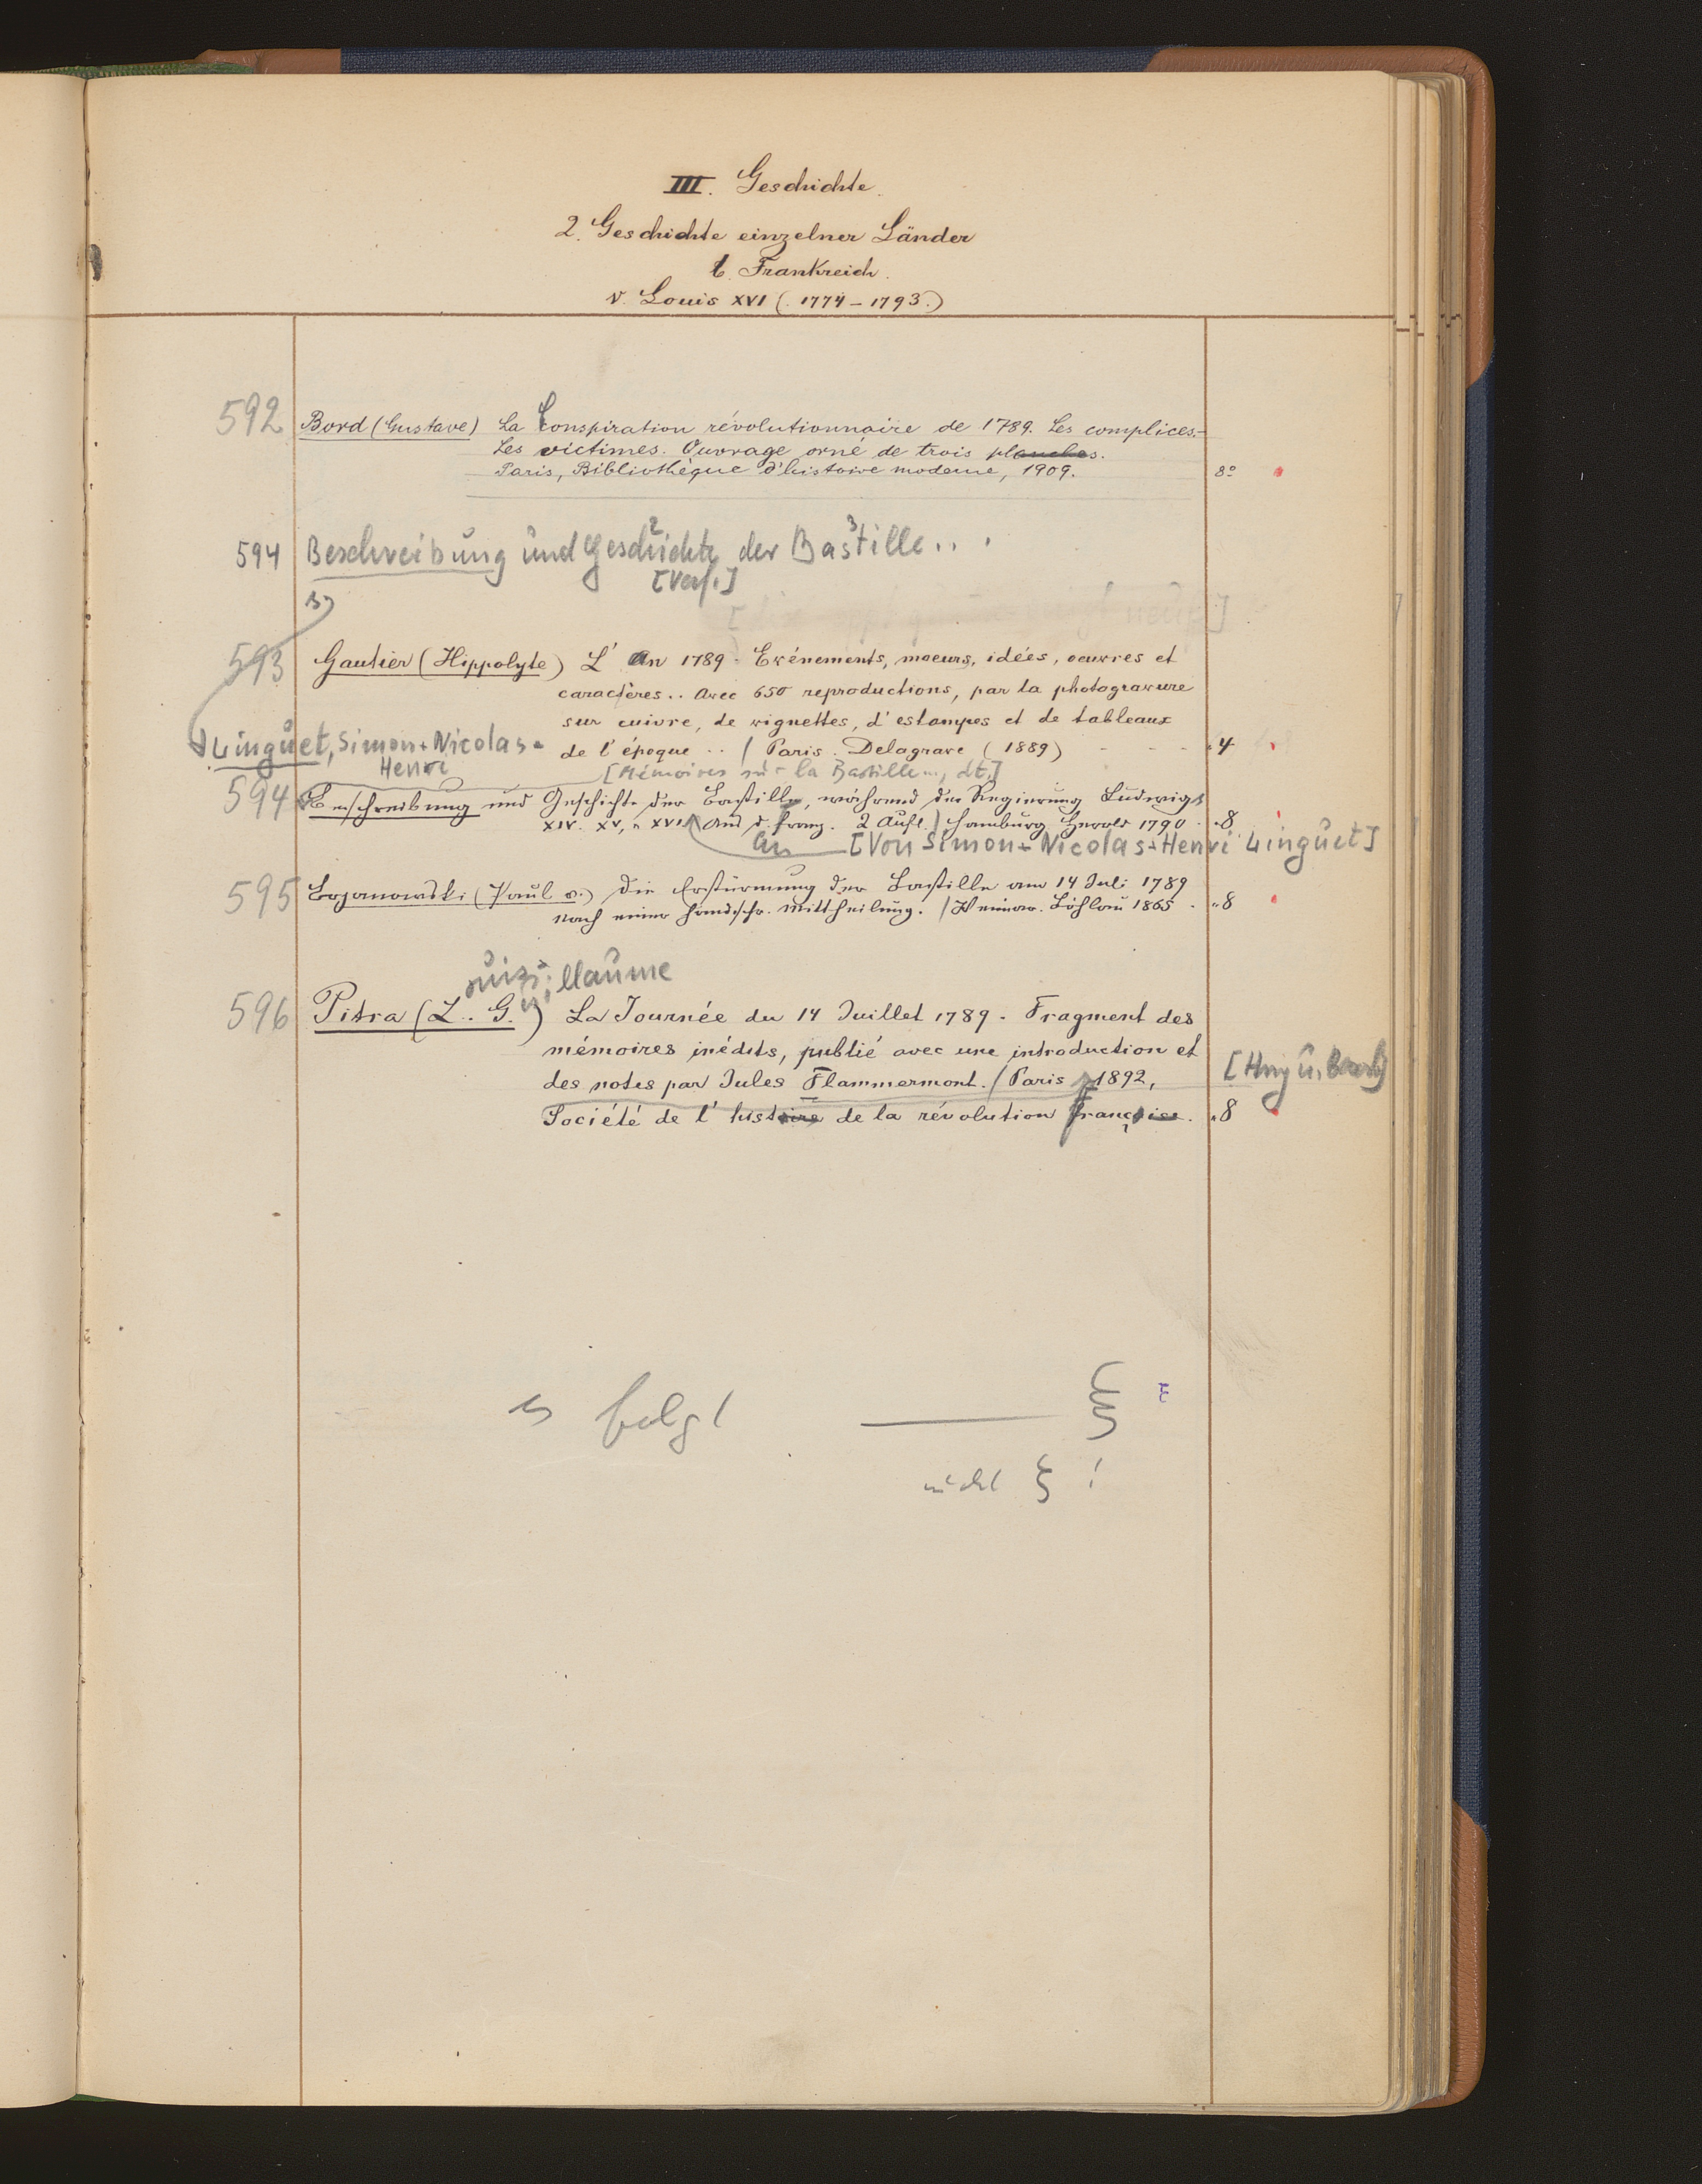 III. Geschichte.
2. Geschichte einzelner Länder
l. Frankreich.
v. Louis XVI (1774-1793.)
592 Bord (Gustave) La Conspiration révolutionnaire de 1789. Les complices.-
Les victimes. Ouvrage orné de trois planches.
Paris, Bibliothèque d'histoire moderne, 1909. 8°
594 Beschreibung und Geschichte der Bastille...
2 3
[Verf.]
593 Gautier (Hippolyte) L'An 1789. Evénements, moeurs, idées, oeuvres et
caractères.. Avec 650 reproductions, par la photogravure
sur cuivre, de vignettes, d'estampes et de tableaux
de l'époque .. / Paris. Delagrave (1889) - - - "4
Linguet, Simon-Nicolas-
Henri
[Mémoires sur la Bastille..., dt.]
594 Beschreibung und Geschichte der Bastille, während der Regierung Ludwigs
XIV. XV, u XVI. Aus d. Franz. 2 Aufl. / Hamburg Herold 1790. "8
an [Von Simon-Nicolas-Henri Linguet]
595 Bojanowski (Paul v.) Die Erstürmung der Bastille am 14 Juli 1789
nach einer handschr. Mittheilung. / Weimar. Böhlau 1865. "8
ouis illaume
596 Pitra (L. G.) La Journée du 14 Juillet 1789. Fragment des
mémoires inédits, publié avec une introduction et
des notes par Jules Flammermont. / Paris 1892,
[Hrsg u.
Société de l'histoire de la révolution française. "8
folgt ξ
nicht ξ !